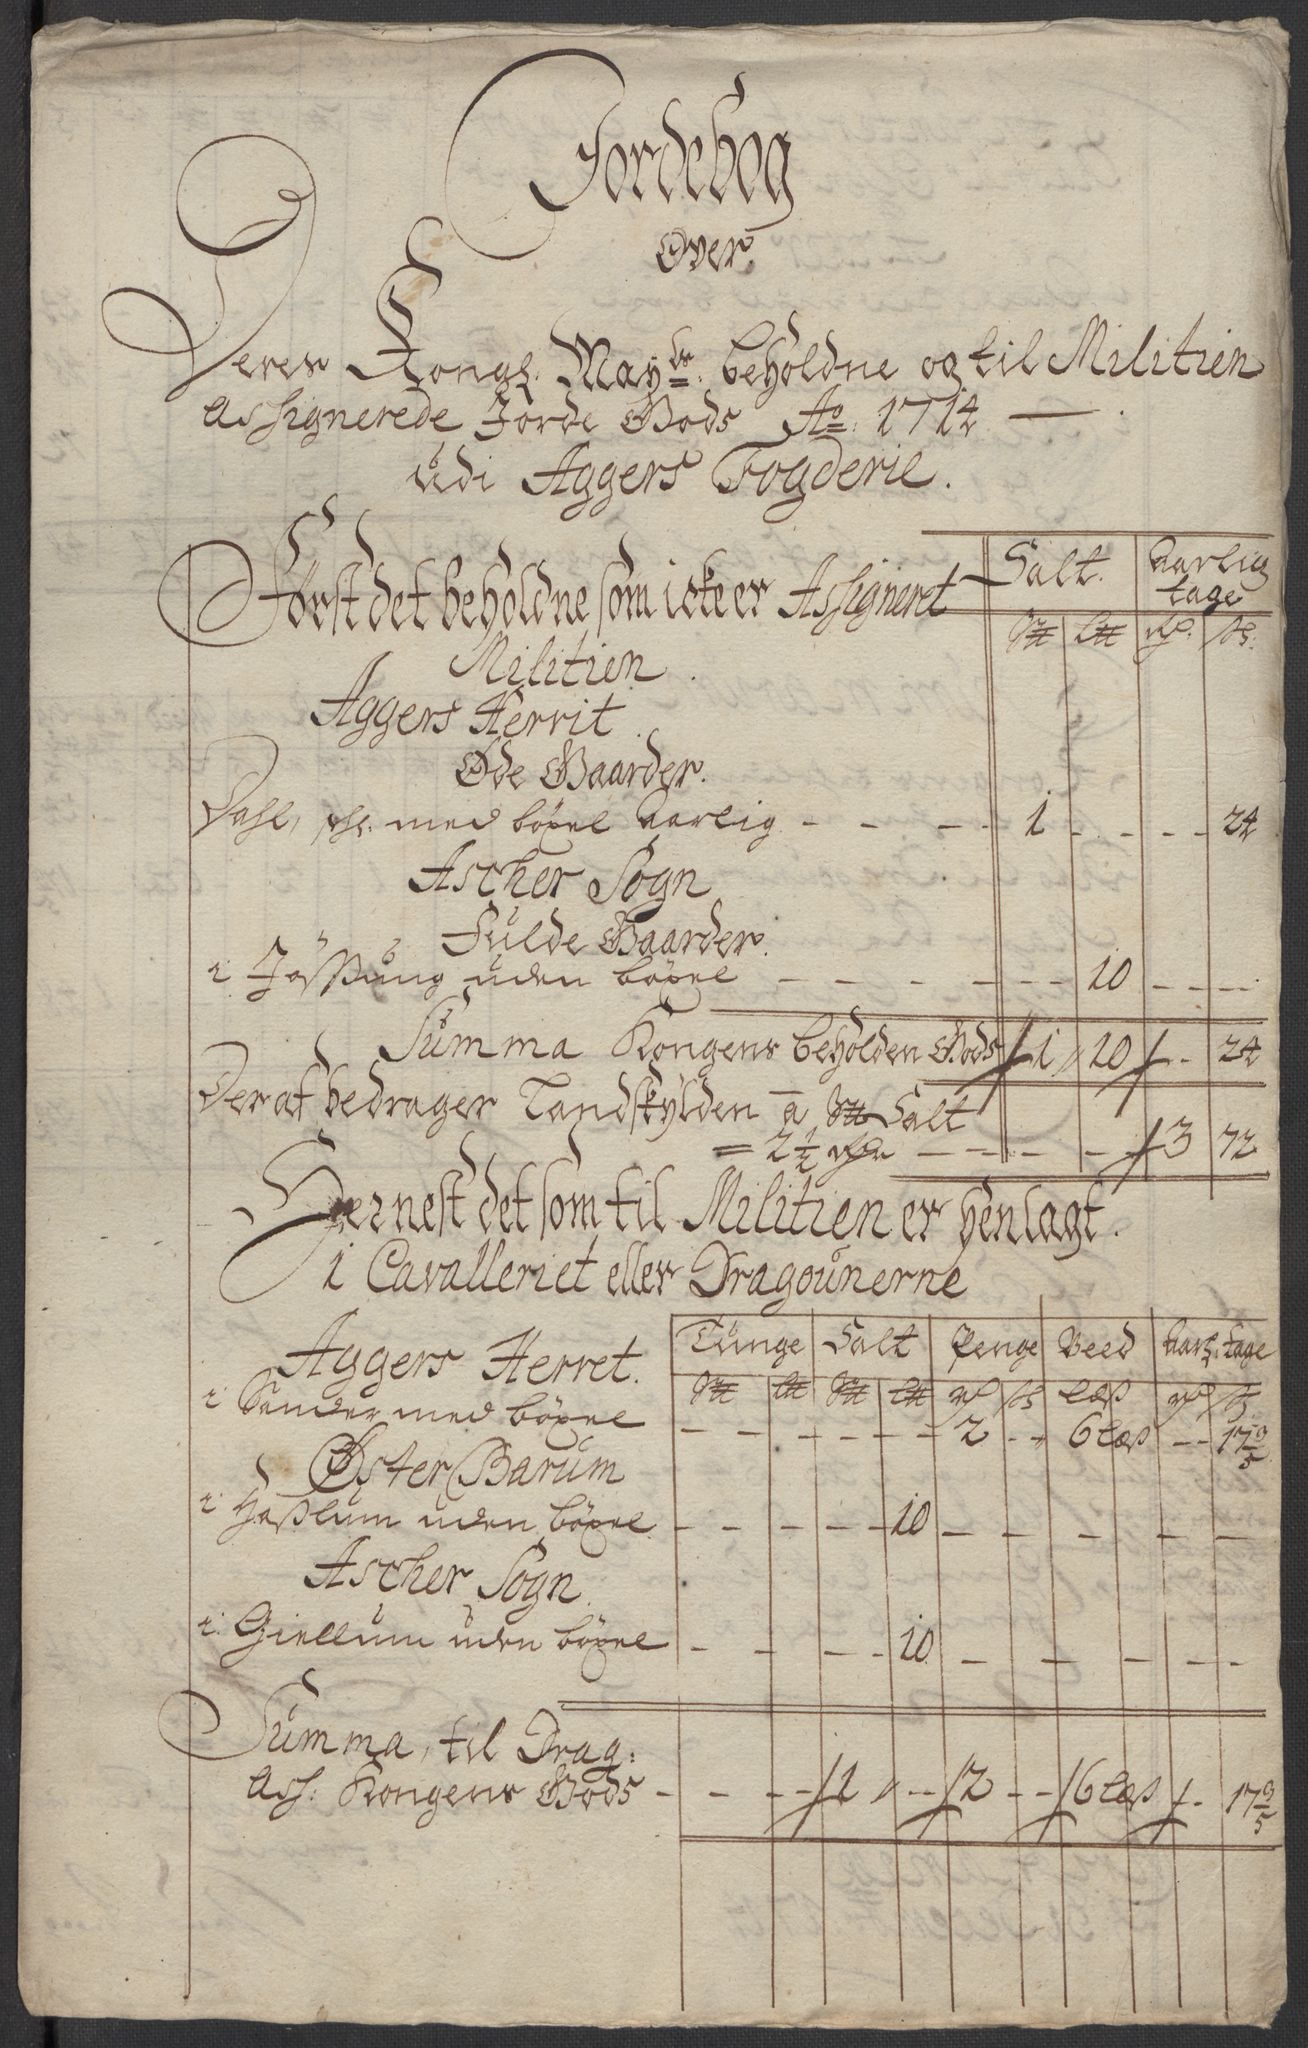 Jordebog
Over
Deres Kongl. Mayts. beholdne og til Militien
Assignerede Jorde Gods Ao. 1714
udi Aggers Fogderie.
Først det beholdne som icke er Assigneret Salt. Aarlig
tage
Militien.
Aggers Herrit
Øde Gaarder.
Dahl, med böxel Aarlig - - - - 1 - - - 24
Ascher Sogn
Fulde Gaarder.
i Jøssung uden böxel - - - - - 10 - - -
Summa Kongens beholden Gods 1 10 - 24
Deraf bedrager Landskÿlden a Salt
2 1/2 - - - - - 3 72
Hernest det som til Militien er henlagt.
i Cavalleriet eller Dragounerne
Aggers Herret. Tunge Salt Penge Veed Aarl. tage
i Sander med böxel - - - - - - 2 - 6 læs - 17 9/5
Øster Barum
i Haslum uden böxel - - - - 10 - - - - - -
Ascher Sogn
i Giellum uden böxel - - - - 10 - - - - - -
Summa, til Drag:
Ass: Kongens Gods - - - - 1 - 2 - 6 læs - 17 9/5